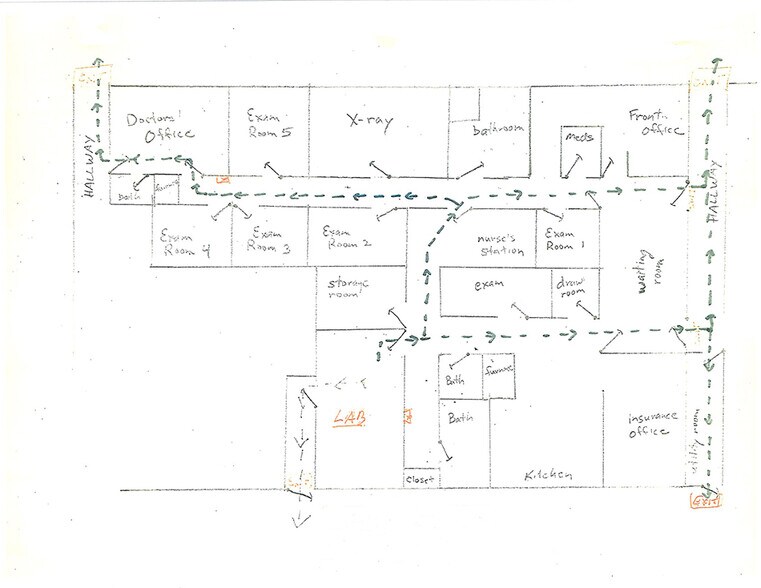 Doctors'
Office
Exam
Room 5
X-ray
bathroom
Meds
Front
Office
HALLWAY
HALLWAY
Bath
furnace
Exam
Room 4
Exam
Room 3
Exam
Room 2
nurse's
station
Exam
Room 1
waiting
room
storage
room
exam
draw
room
Bath
furnace
LAB
Bath
insurance
office
utility room
closet
Kitchen
EXIT